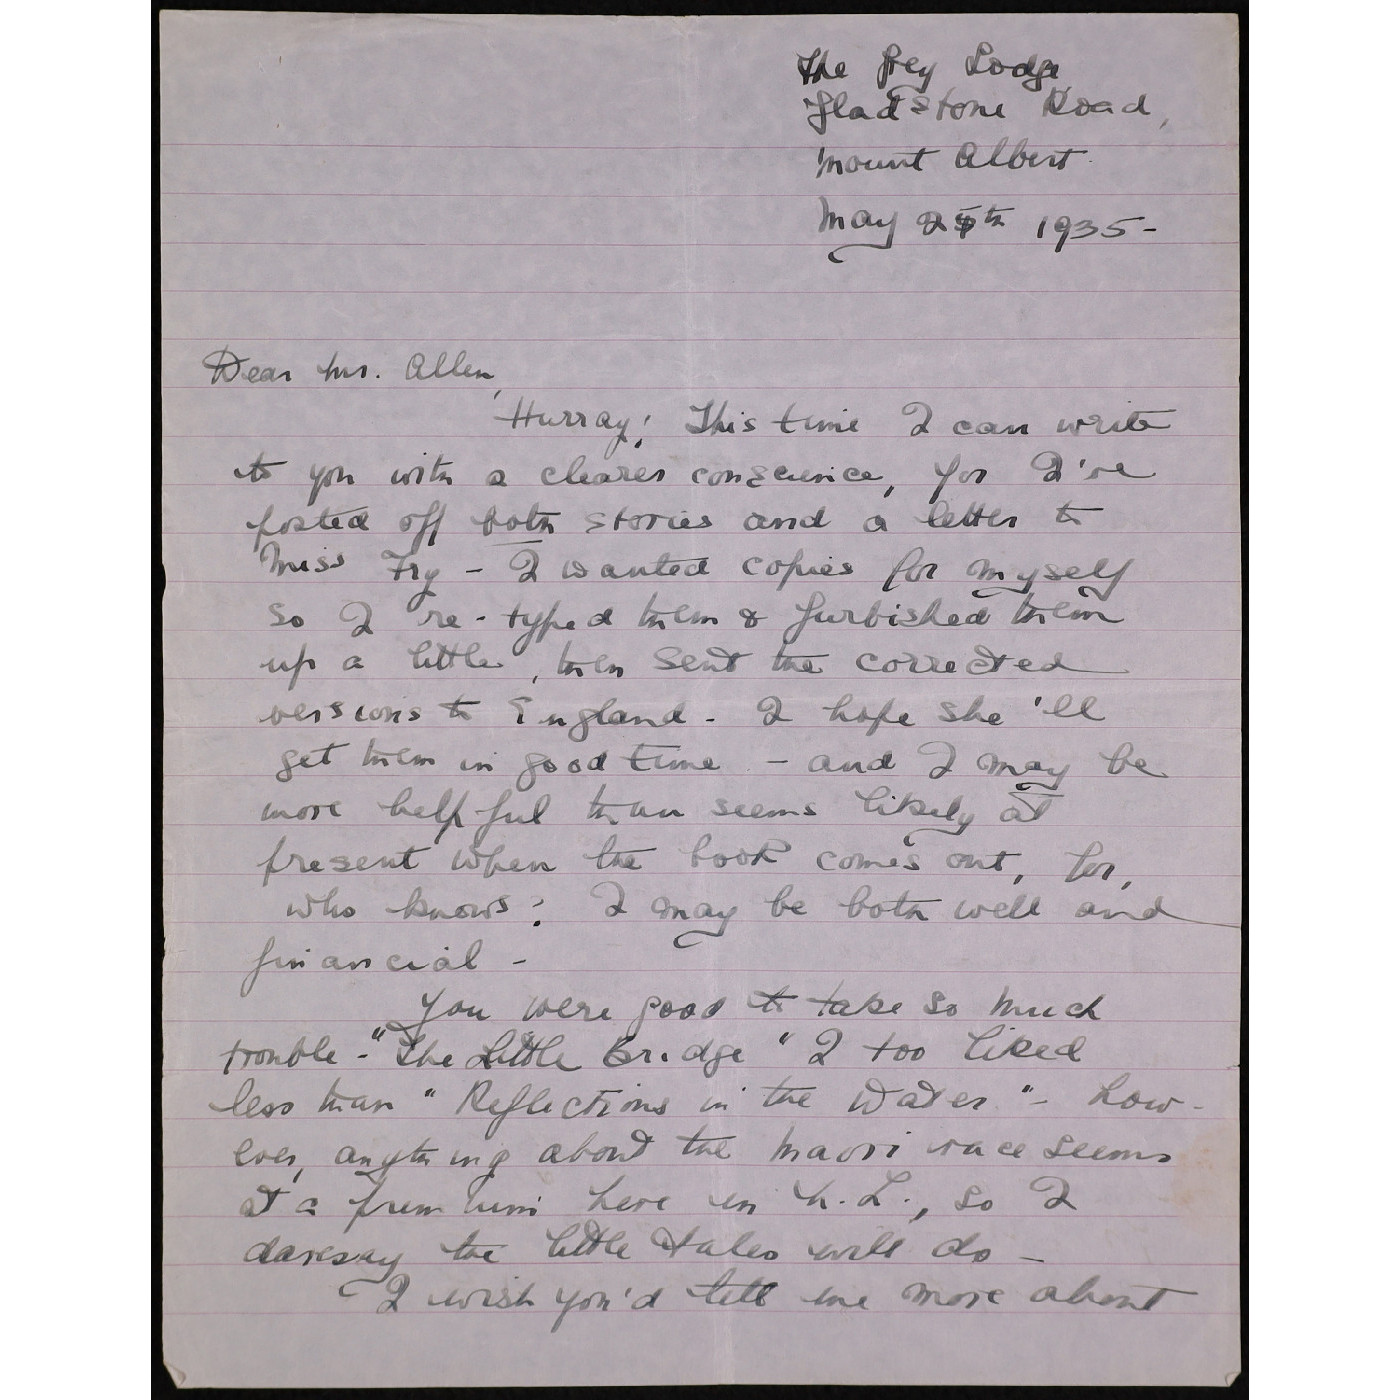 The Grey Lodge
Gladstone Road,
Mount Albert.
May 25th 1935-
Dear Mr. Allen,
Hurray! This time I can write
to you with a clearer conscience, for I've
posted off both stories and a letter to
Miss Fry - I wanted copies for myself
so I re-typed them & furbished them
up a little, then sent the corrected
versions to England. I hope she'll
get them in good time - and I may be
more helpful than seems likely at
present when the book comes out, for,
who knows? I may be both well and
financial -
You were good to take so much
trouble - "The Little Bridge" I too liked
less than "Reflections in the Water" - how-
ever, anything about the Maori race seems
at a premium here in N.Z., so I
daresay the little tales will do -
I wish you'd tell me more about